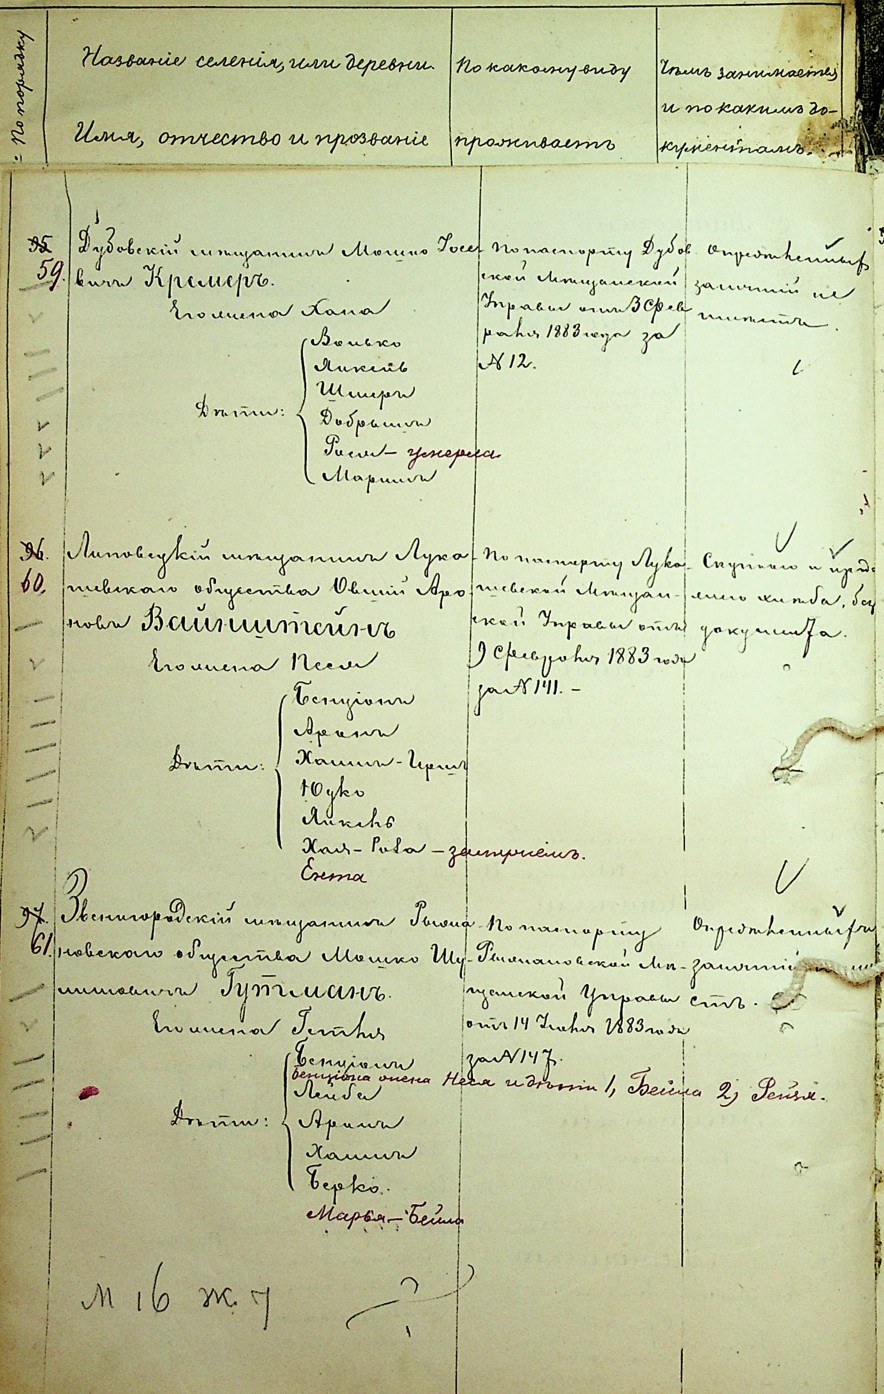 По порядку
Названіе селенія, или деревни.
Имя, отчество и прозваніе
По какому виду
проживаетъ
Чѣмъ занимается
и по какимъ до-
кументамъ.
35
59.
Дубовскій мѣщанинъ Мошко Іосе-
вичъ Кремеръ.
Его жена Хана
Дѣти:
Волько
Янкель
Шмеръ
Добрышъ
Рося – умерла
Маршъ
По паспорту Дубов
ской Мѣщанской
Управы отъ 3 Фев
раля 1883 года за
№ 12.
Опредѣленныхъ
занятій не
имѣетъ.
36.
60.
Липовецкій мѣщанинъ Лука-
шевскаго общества Овшій Аро-
новъ Вайнштейнъ
Его жена Песя
Дѣти:
Бенціонъ
Аронъ
Хаимъ-Иршъ
Юдко
Янкель
Хая-Рова – замужемъ.
Ента
По паспорту Лука-
шевской Мѣщан-
ской Управы отъ
9 Февраля 1883 года
за № 141. –
Скупкою и прода
жею хлѣба, без
документа.
37.
61.
Звенигородскій мѣщанинъ Рыжа-
новскаго общества Мошко Шу-
лимовичъ Гутманъ.
Его жена Гитля
Дѣти:
Бенціонъ
Бенціона жена Неся и дѣти 1, Бейла 2, Рейзя.
Лейба
Аронъ
Хаимъ
Берко.
Марья-Бейла
По паспорту
Рыжановской Мѣ-
щанской Управы
отъ 14 Іюня 1883 года
за № 147.
Опредѣленныхъ
занятій
М 16 Ж. 7